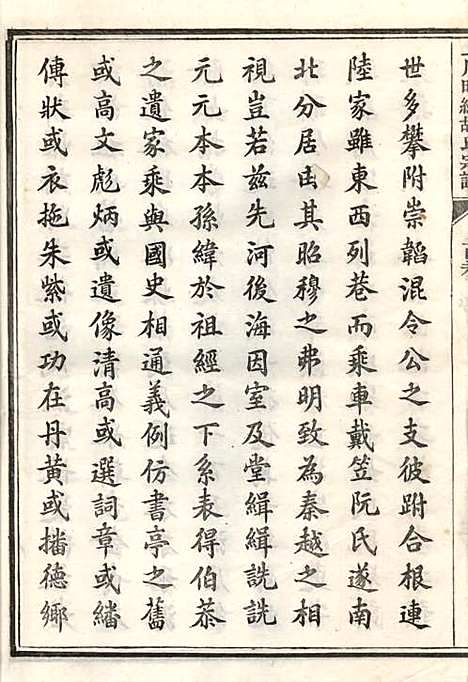 世多攀附崇韜混令公之支彼跗合根連
陸家雖東西列巷而乘車戴笠阮民遂南
北分居由其昭穆之弗明致為秦越之相
視豈若兹先河後海因室及堂緝緝詵詵
元元本本孫緯於祖經之下系表得伯恭
之遺家乘與國史相通義例仿書亭之舊
或高文彪炳或遺像清高或選詞章或繙
傳狀或衣拖朱紫或功在丹黃或播德鄉